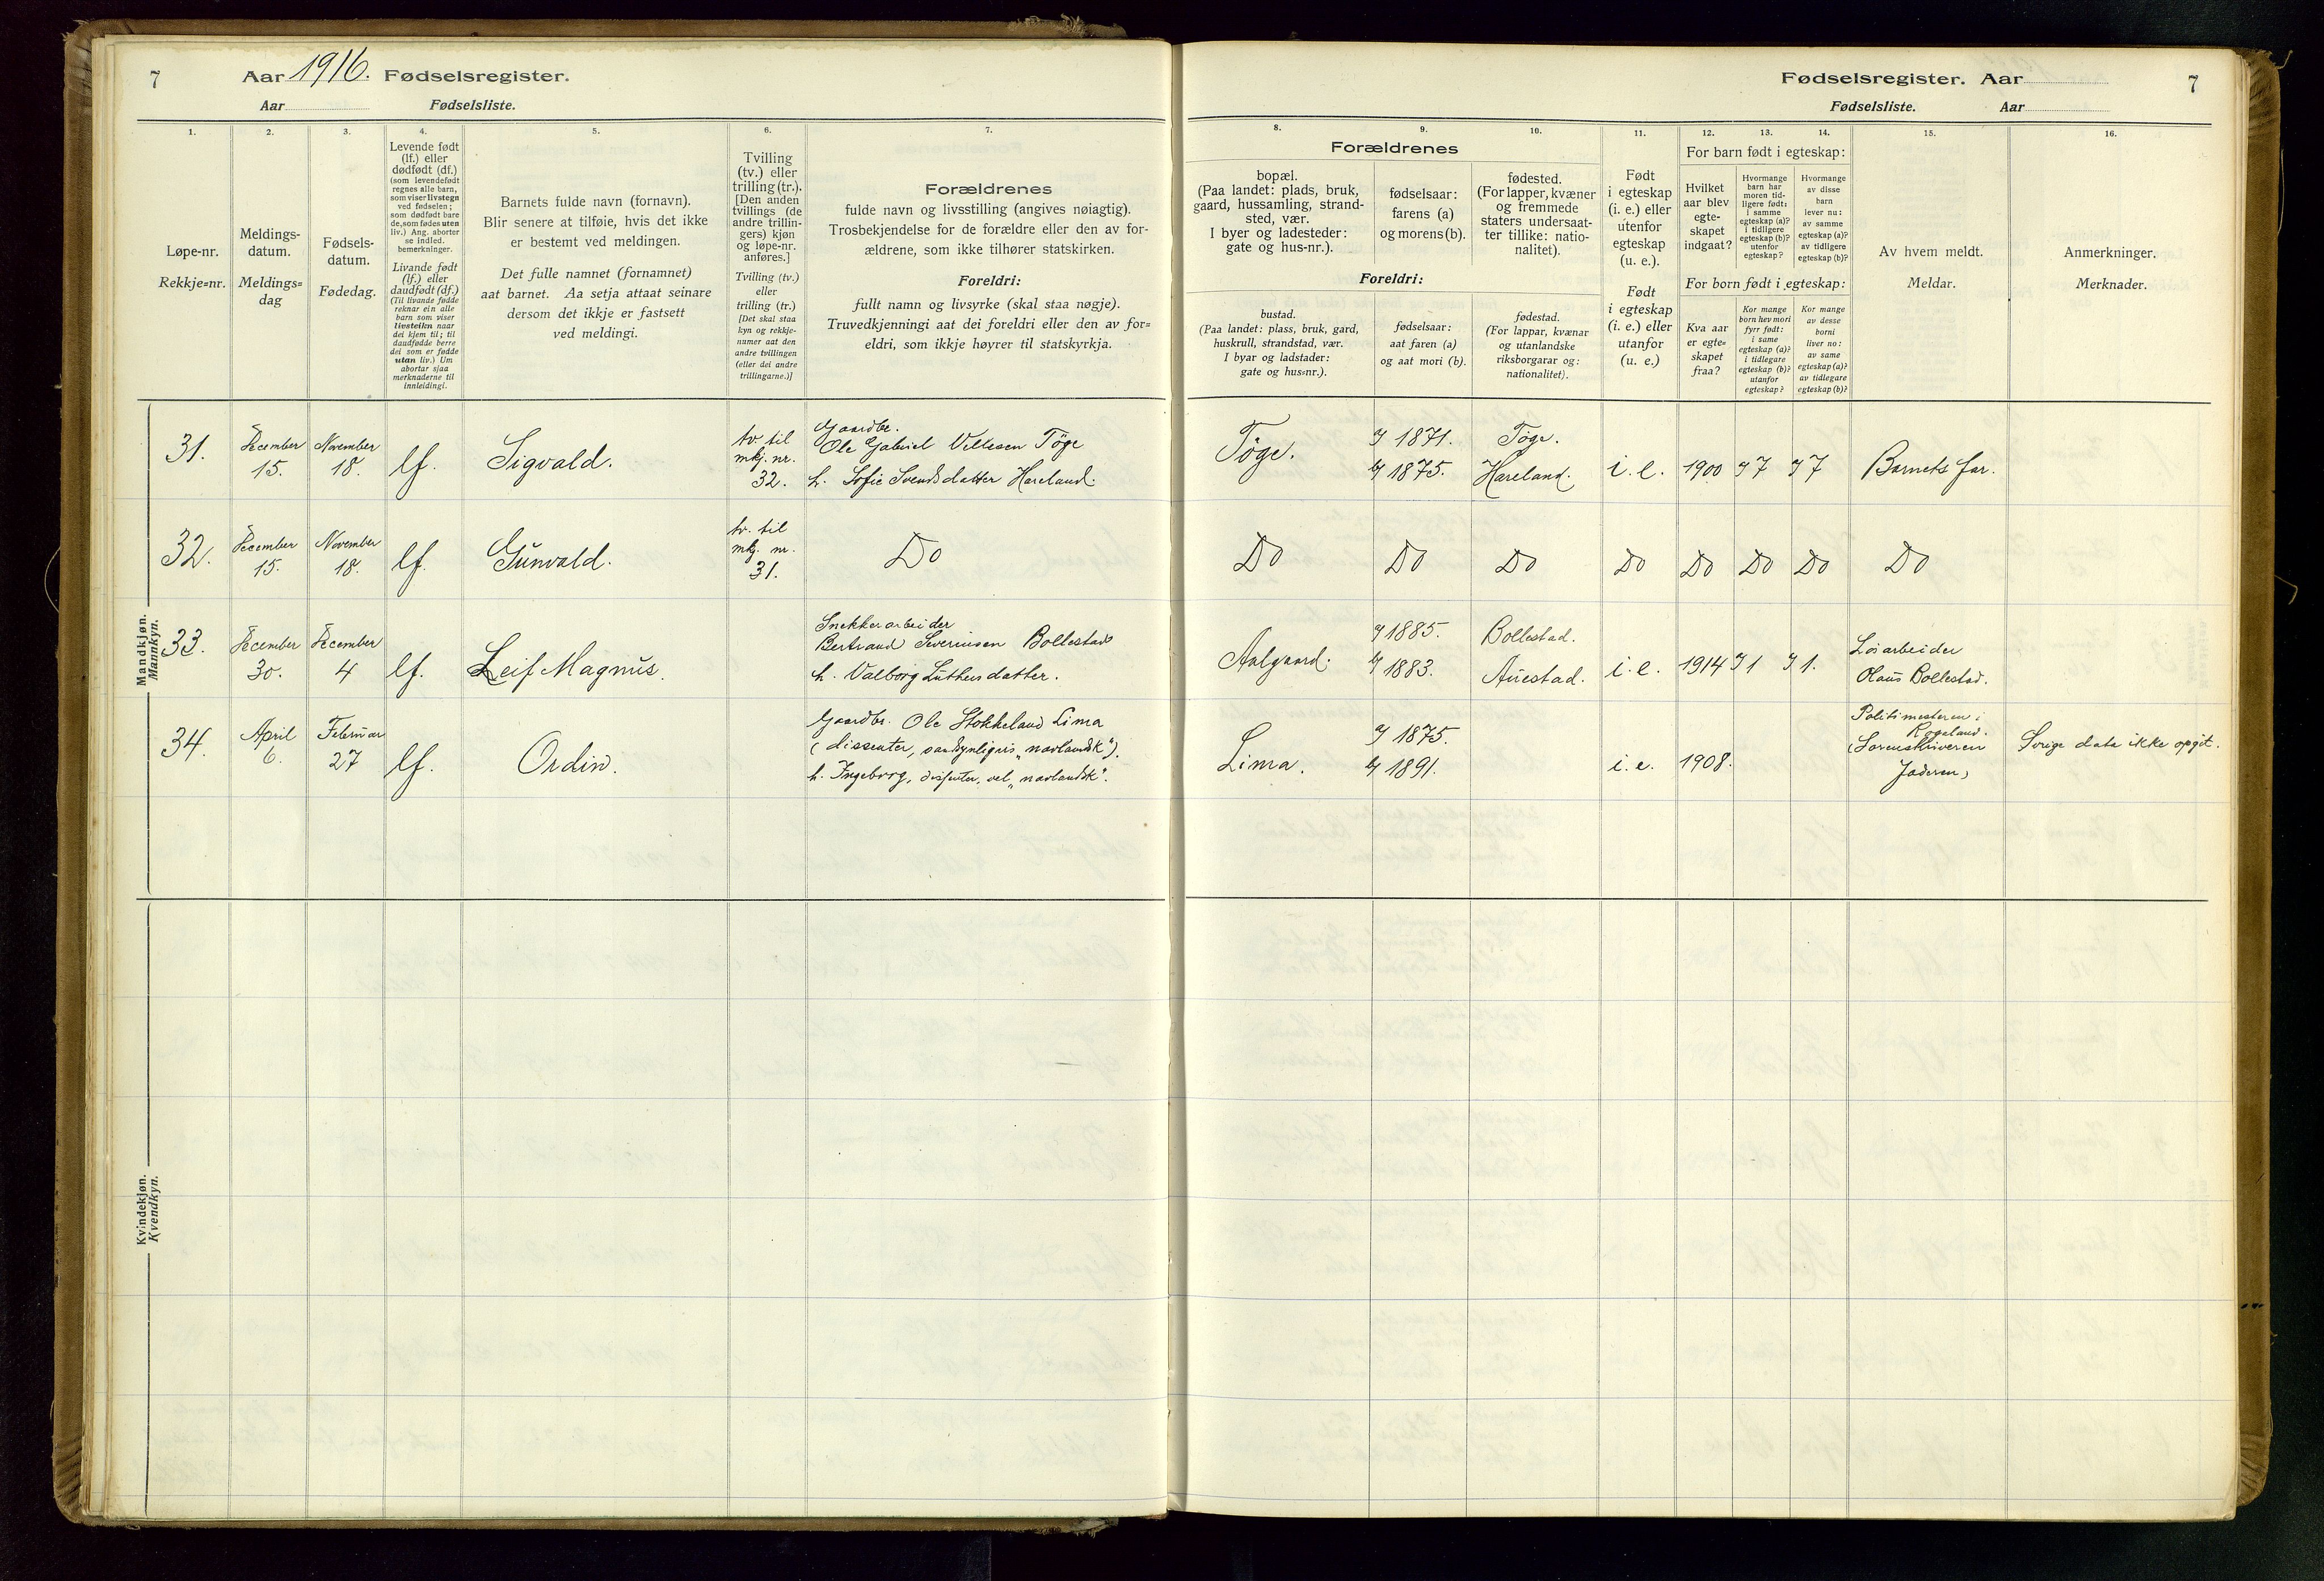 7 Aar 1916. Fødselsregister.
Aar Fødselsliste.
Fødselsregister. Aar 7
Fødselsliste. Aar
1. 2. 3. 4. 5. 6. 7.
Løpe-nr.
Rekkje=nr.
Meldings-
datum.
Meldings=
dag
Fødsels-
datum.
Fødedag.
Levende født
(lf.) eller
dødfødt (df.)
(som levendefødt
regnes alle barn,
som viser livstegn
ved fødselen;
som dødfødt bare
de, som fødes uten
liv.) Ang. aborter
se indled.
bemerkninger.
Livande født
(lf.) eller
daudfødt (df.)
(Til livande fødde
reknar ein alle
born som viser
livsteikn naar
dei kjem til; til
daudfødde berre
dei som er fødde
utan liv.) Um
abortar sjaa
merknaderne til
innleidingi.
Barnets fulde navn (fornavn).
Blir senere at tilføie, hvis det ikke
er bestemt ved meldingen.
Det fulle namnet (fornamnet)
aat barnet. Aa setja attaat seinare
dersom det ikkje er fastsett
ved meldingi.
Tvilling
(tv.) eller
trilling (tr.).
[Den anden
tvillings (de
andre trillin-
gers) kjøn
og løpe-nr.
anføres.]
Tvilling (tv.)
eller
trilling (tr.)
[Det skal staa
kyn og rekkje-
numer aat den
andre tvillingen
(eller dei andre
trillingarne.)]
Forældrenes
fulde navn og livsstilling (angives nøiagtig).
Trosbekjendelse for de forældre eller den av for-
ældrene, som ikke tilhører statskirken.
Foreldri:
fullt namn og livsyrke (skal staa nøgje).
Truvedkjenningi aat dei foreldri eller den av for=
eldri, som ikkje høyrer til statskyrkja.
8. 9. 10. 11. 12. 13. 14. 15. 16.
Forældrenes
bopæl.
(Paa landet: plads, bruk,
gaard, hussamling, strand-
sted, vær.
I byer og ladesteder:
gate og hus-nr.).
fødselsaar:
farens (a)
og morens (b).
fødested.
(For lapper, kvæner
og fremmede
staters undersaat-
ter tillike: natio-
nalitet).
Foreldri:
bustad.
(Paa landet: plass, bruk, gard,
huskrull, strandstad, vær.
I byar og ladstader:
gate og hus=nr.).
fødselsaar:
aat faren (a)
og aat mori (b).
fødestad.
(For lappar, kvænar
og utanlandske
riksborgarar og:
nationalitet).
Født
i egteskap
(i. e.) eller
utenfor
egteskap
(u. e.).
Født
i egteskap
(i. e.) eller
utanfor
(u. e.)
For barn født i egteskap:
Hvilket
aar blev
egte-
skapet
indgaat?
Hvormange
barn har
moren tid-
ligere født:
i samme
egteskap (a)?
i tidligere
egteskap (b)?
utenfor
egteskap?
Hvormange
av disse
barn
lever nu:
av samme
egteskap (a)?
av tidligere
egteskap (b)?
For born født i egteskap:
Kva aar
er egte=
skapet
fraa?
Kor mange
born hev mori
fyrr født:
i same
egteskap (a)?
i tidlegare
egteskap (b)?
utanfor
egteskap?
Kor mange
av desse
borni
liver no:
av same
egteskap (a)?
av tidlegare
egteskap (b)?
Av hvem meldt.
Meldar.
Anmerkninger.
Merknader.
Mandkjøn.
Mannkyn.
31. December 15. November 18. lf. Sigvald. tv. til mkj. nr. 32.
Gaardbr.
Ole Gabriel Velesen Töge
h. Sofie Svendsdatter Hareland.
Töge. a) 1871. b) 1875. Töge. Hareland. i. e. 1900 a) 7 a) 7 Barnets far.
32. December 15. November 18. lf. Gunvald. tv. til mkj. nr. 31. Do
Do Do Do Do Do Do Do Do
33. December 30. December 4 lf. Leif Magnus.
Snekkerarbeider
Bertrand Severinsen Bollestad
h. Valborg Luthersdatter.
Aalgaard. a) 1885. b) 1883. Bollestad. Auestad. i. e. 1914 a) 1 a) 1.
Olaus Bollestad.
34. April 6. Februar 27 lf. Ordin.
Gaardbr. Ole Stokkeland Lima
(dissenter, sandsynligvis „navlandsk“).
h. Ingeborg, dissenter, vel „navlandsk“.
Lima. a) 1875. b) 1891. i. e. 1908.
Politimesteren i
Rogaland.
(Sorenskriveren
Jæderen)
Övrige data ikke opgit.
Kvindekjøn.
Kvendkyn.